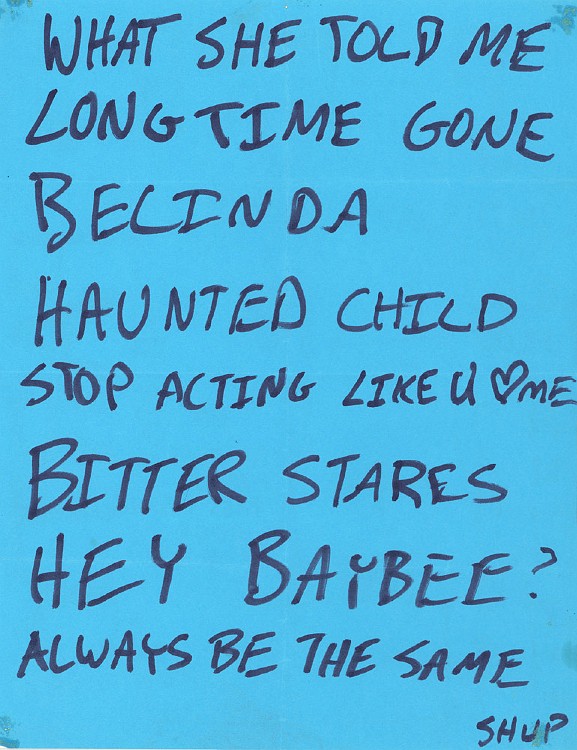 WHAT SHE TOLD ME
LONG TIME GONE
BELINDA
HAUNTED CHILD
STOP ACTING LIKE U ♡ ME
BITTER STARES
HEY BAYBEE?
ALWAYS BE THE SAME
SHUP